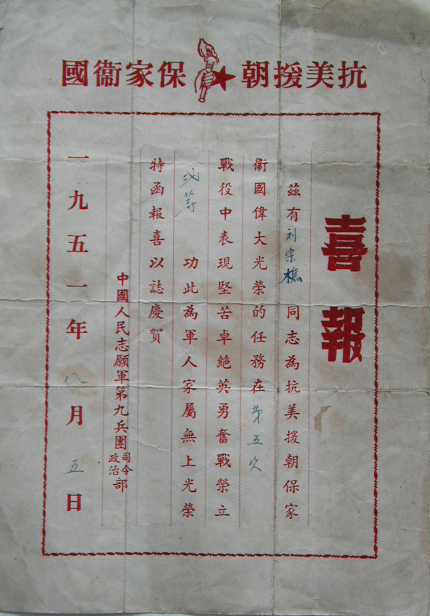 抗美援朝 保家衞國
喜報
茲有刘宗樵同志為抗美援朝保家
衛國偉大光榮的任務在第五次
戰役中表現堅苦卓絶英勇奮戰榮立
等 功此為軍人家屬無上光榮
特函報喜以誌慶賀
中國人民志願軍第九兵團司令政治部
一九五一年八月五日